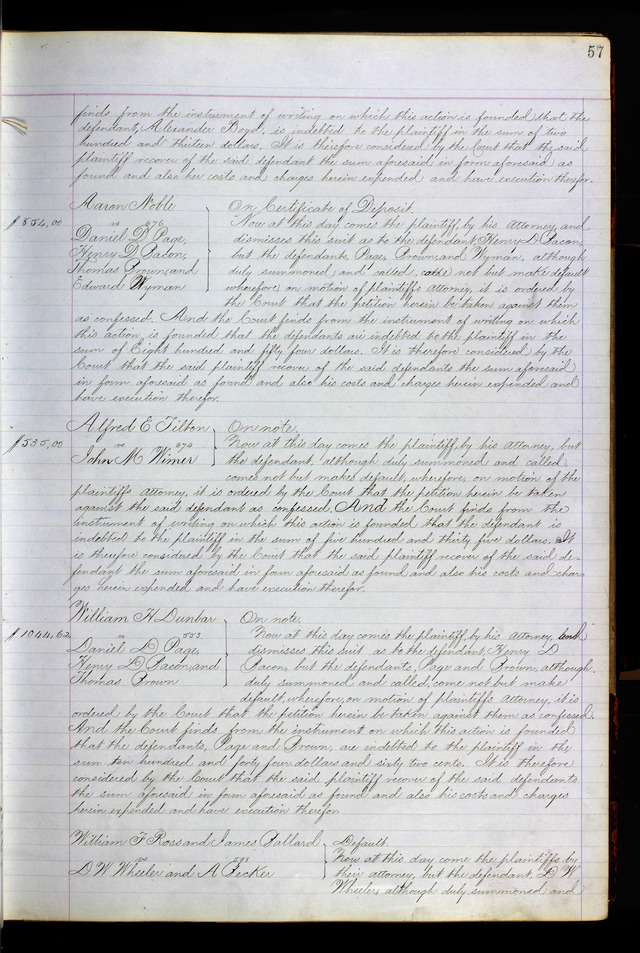 57
finds from the instrument of writing on which this action is founded, that the
defendant, Alexander Boyd, is indebted to the plaintiff in the sum of two
hundred and thirteen dollars. It is therefore considered by the Court that the said
plaintiff recover of the said defendant the sum aforesaid in form aforesaid as
found and also her costs and charges herein expended and have execution therefor.
Aaron Noble } On Certificate of Deposit.
vs 676 Now at this day comes the plaintiff, by his attorney, and
$854,00 Daniel D Page, dismisses this suit as to the defendant, Henry D Bacon,
Henry D Bacon, but the defendants, Page, Brown, and Wyman, although
Thomas Brown, and duly summoned, and called, come not but make default
Edward Wyman wherefore, on motion of plaintiffs attorney, it is ordered by
the Court that the petition herein be taken against them
as confessed. And the Court finds from the instrument of writing on which
this action, is founded that the defendants are indebted to the plaintiff in the
sum of Eight hundred and fifty four dollars. It is therefore considered by the
Court that the said plaintiff recover of the said defendants the sum aforesaid
in form aforesaid as found and also his costs and charges herein expended and
have execution therefor.
Alfred E Tilton } On note.
$535,00 vs 674 Now at this day comes the plaintiff, by his attorney, but
John M Wimer the defendant, although duly summoned and called,
comes not but makes default, wherefore, on motion of the
plaintiffs attorney, it is ordered by the Court that the petition herein be taken
against the said defendant as confessed. And the Court finds from the
instrument of writing on which this action is founded that the defendant is
indebted to the plaintiff in the sum of five hundred and thirty five dollars. It
is therefore considered by the Court that the said plaintiff recover of the said de-
fendant the sum aforesaid in form aforesaid as found and also his costs and char-
ges herein expended and have execution therefor.
William H Dunbar } On note.
$1044,62 vs 553 Now at this day comes the plaintiff, by his attorney, and
Daniel D Page, dismisses this suit as to the defendant, Henry D
Henry D Bacon, and Bacon, but the defendants, Page and Brown, although
Thomas Brown duly summoned and called, come not but make
default, wherefore, on motion of plaintiffs attorney, it is
ordered by the Court that the petition herein be taken against them as confessed.
And the Court finds from the instrument on which this action is founded
that the defendants, Page and Brown, are indebted to the plaintiff in the
sum ten hundred and forty four dollars and sixty two cents. It is therefore
considered by the Court that the said plaintiff recover of the said defendants
the sum aforesaid in form aforesaid as found and also his costs and charges
herein expended and have execution therefor.
William F Ross and James Ballard } Default.
vs Now at this day come the plaintiffs by
D W Wheeler and A Pecker their attorney, but the defendant, D W
Wheeler, although duly summoned and